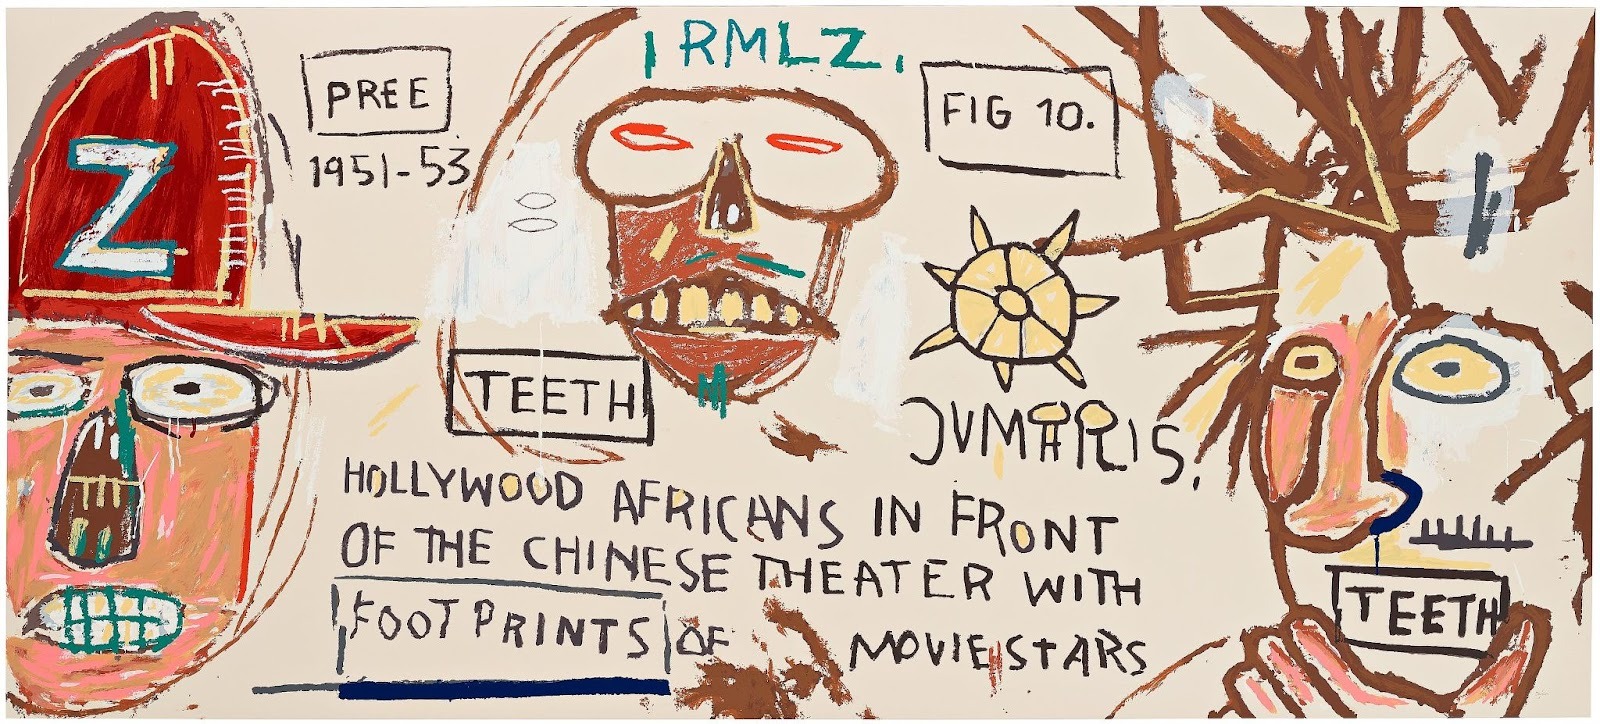 Z
PREE
1951-53
RMLZ.
FIG 10.
TEETH
JUMAPLIS.
HOLLYWOOD AFRICANS IN FRONT
OF THE CHINESE THEATER WITH
FOOT PRINTS OF MOVIE STARS
TEETH